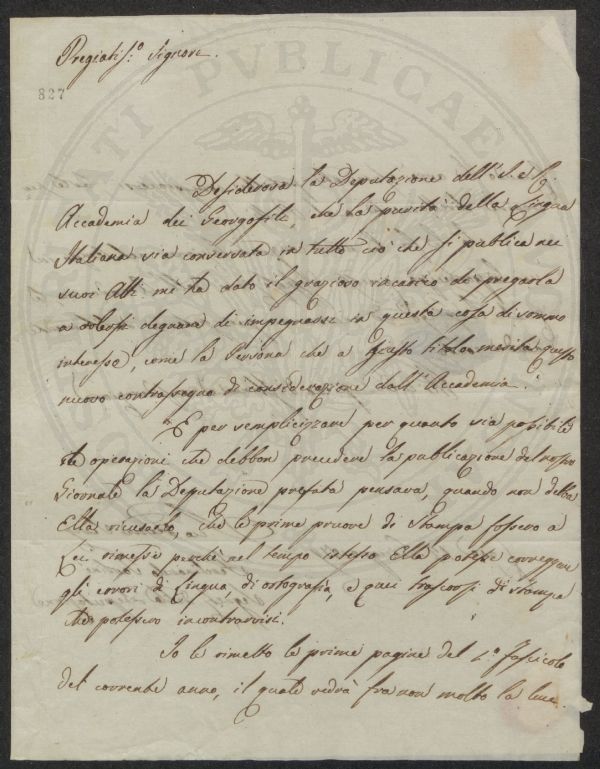 Pregiatis:º Signore.
827
Desiderosa la Deputazione dell' I. e R.
Accademia dei Georgofili, che la purità della Lingua
Italiana sia conservata in tutto ciò che si publica nei
suoi Atti mi ha dato il grazioso incarico di pregarla
a volersi degnare di impegnarsi in questa cosa di sommo
interesse, come la Persona che a giusto titolo merita questo
nuovo contrassegno di considerazione dall' Accademia.
E per semplicizzare per quanto sia possibile
le operazioni che debbon precedere la publicazione del nostro
Giornale la Deputazione prefata pensava, quando non debba
Ella ricusarlo, che le prime pruove di Stampa fossero a
Lei rimesse perchè nel tempo istesso Ella potesse correggere
gli errori di Lingua, di ortografia, e quei trascorsi di stampa
che potessero incontrarvisi.
Io le rimetto le prime pagine del 2º fascicolo
del corrente anno, il quale vedrà fra non molto la luce.